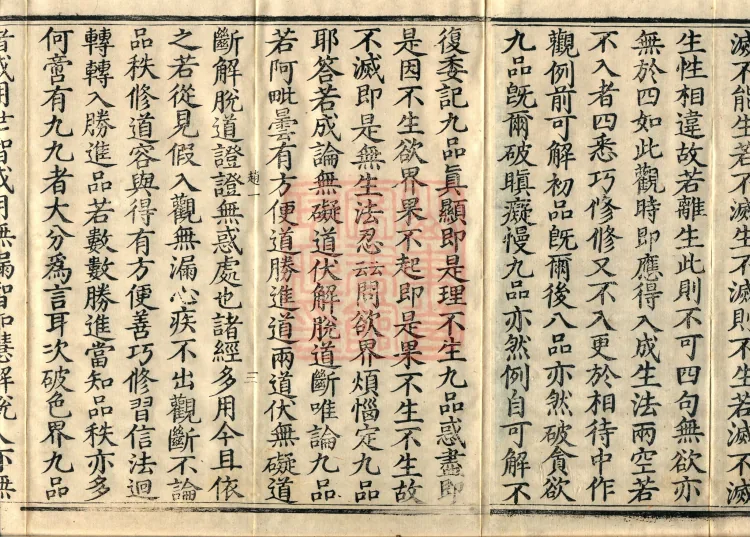 滅不能生若不滅生不滅則不生若滅不滅
生性相違故若離生此則不可四句無欲亦
無於四如此觀時即應得入成生法兩空若
不入者四悉巧修修又不入更於相待中作
觀例前可解初品旣爾後八品亦然破貪欲
九品旣爾破瞋癡慢九品亦然例自可解不
復委記九品眞顯即是理不生九品惑盡即
是因不生欲界果不起即是果不生不生故
不滅即是無生法忍云云問欲界煩惱定九品
耶答若成論無礙道伏解脫道斷唯論九品
若阿毗曇有方便道勝進道兩道伏無礙道
趙一
三
斷解脫道證證無惑處也諸經多用今且依
之若從見假入觀無漏心疾不出觀斷不論
品秩修道容與得有方便善巧修習信法迴
轉轉入勝進品若數數勝進當知品秩亦多
何啻有九九者大分爲言耳次破色界九品
者或用世智或用無漏智如慧解脫人亦無